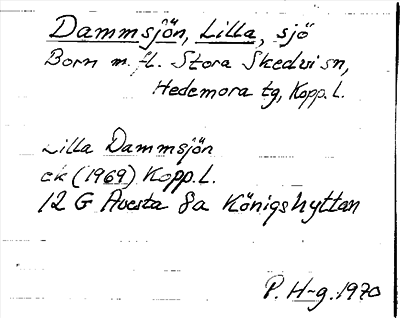 Dammsjön, Lilla, sjö
Born m. fl. Stora Skedvi sn,
Hedemora tg, Kopp. l.
Lilla Dammsjön
ek (1969) Kopp. l.
12 G Avesta 8a Königshyttan
P. H-g. 1970